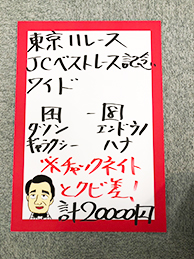 東京11レース
JCベストレース記念
ワイド
田 - 図
ダンソン エンドウノ
ギャラクシー ハナ
※チャックネイト
とクビ差!
計20000円